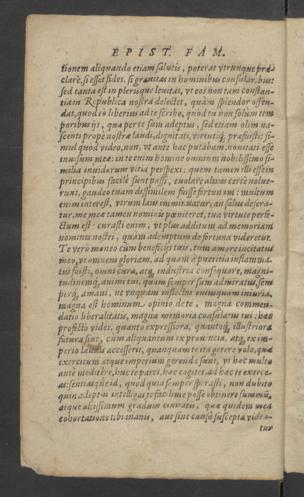 EPIST. FAM.
tionem aliquando etiam salutis, poterat vtrunque præ-
clarè, si esset fides, si grauitas in hominibus consularibus:
sed tanta est in plerisque leuitas, vt eos non tam constan-
tia in Republica nostra delectet, quàm splendor offen-
dat, quod eò liberius ad te scribo, quòd tu non solùm tem-
poribus his, quæ per te sum adeptus, sed etiam olim na-
scenti propè nostræ laudi, dignitati, virtutiq́; præfuisti: si-
mul quòd video, non, vt ante hac putabam, nouitati esse
inuisum meæ: in te enim homine omnium nobilissimo si-
milia inuidorum vitia perspexi: quem tamen illi esse in
principibus facilè sunt passi, euolare altiùs certè nolue-
runt, gaudeo tuam dissimilem fuisse fortunam: multum
enim interest, vtrum laus imminuatur, an salus desera-
tur, me meæ tamen nominis pœniteret, tua virtute perfe-
ctum est: curasti enim, vt plus additum ad memoriam
nominis nostri, quàm ademptum de fortuna videretur.
Te verò moneo cùm beneficijs tuis, tum amore incitatus
meo, vt omnem gloriam, ad quam à pueritia inflamma-
tus fuisti, omni cura, atq́; industria consequare, magni-
tudinemq́; animi tui, quam semper sum admiratus, sem-
perq́; amaui, ne vnquam inflectas cuiusquam iniuria,
magna est hominum opinio de te, magna commen-
datio liberalitatis, magna memoria consulatus tui: hæc
profectò vides, quanto expressiora, quantoq́; illustriora
futura sint, cùm aliquantum ex prouincia, atq́; ex im-
perio laudis accesserit, quanquam te ita gerere volo, quæ
exercitum atque imperium gerenda sunt, vt hæc multò
ante meditere, huc te pares, hæc cogites, ad hæc te exerce-
as: sentiasq́ue id, quod quia semper sperasti, non dubito
quin adeptus intelligas te facillimè posse obtinere summũ,
atque altissimum gradum ciuitatis, quæ quidem mea
cohortatio ne tibi inanis, aut sine causâ suscepta videa-
tur